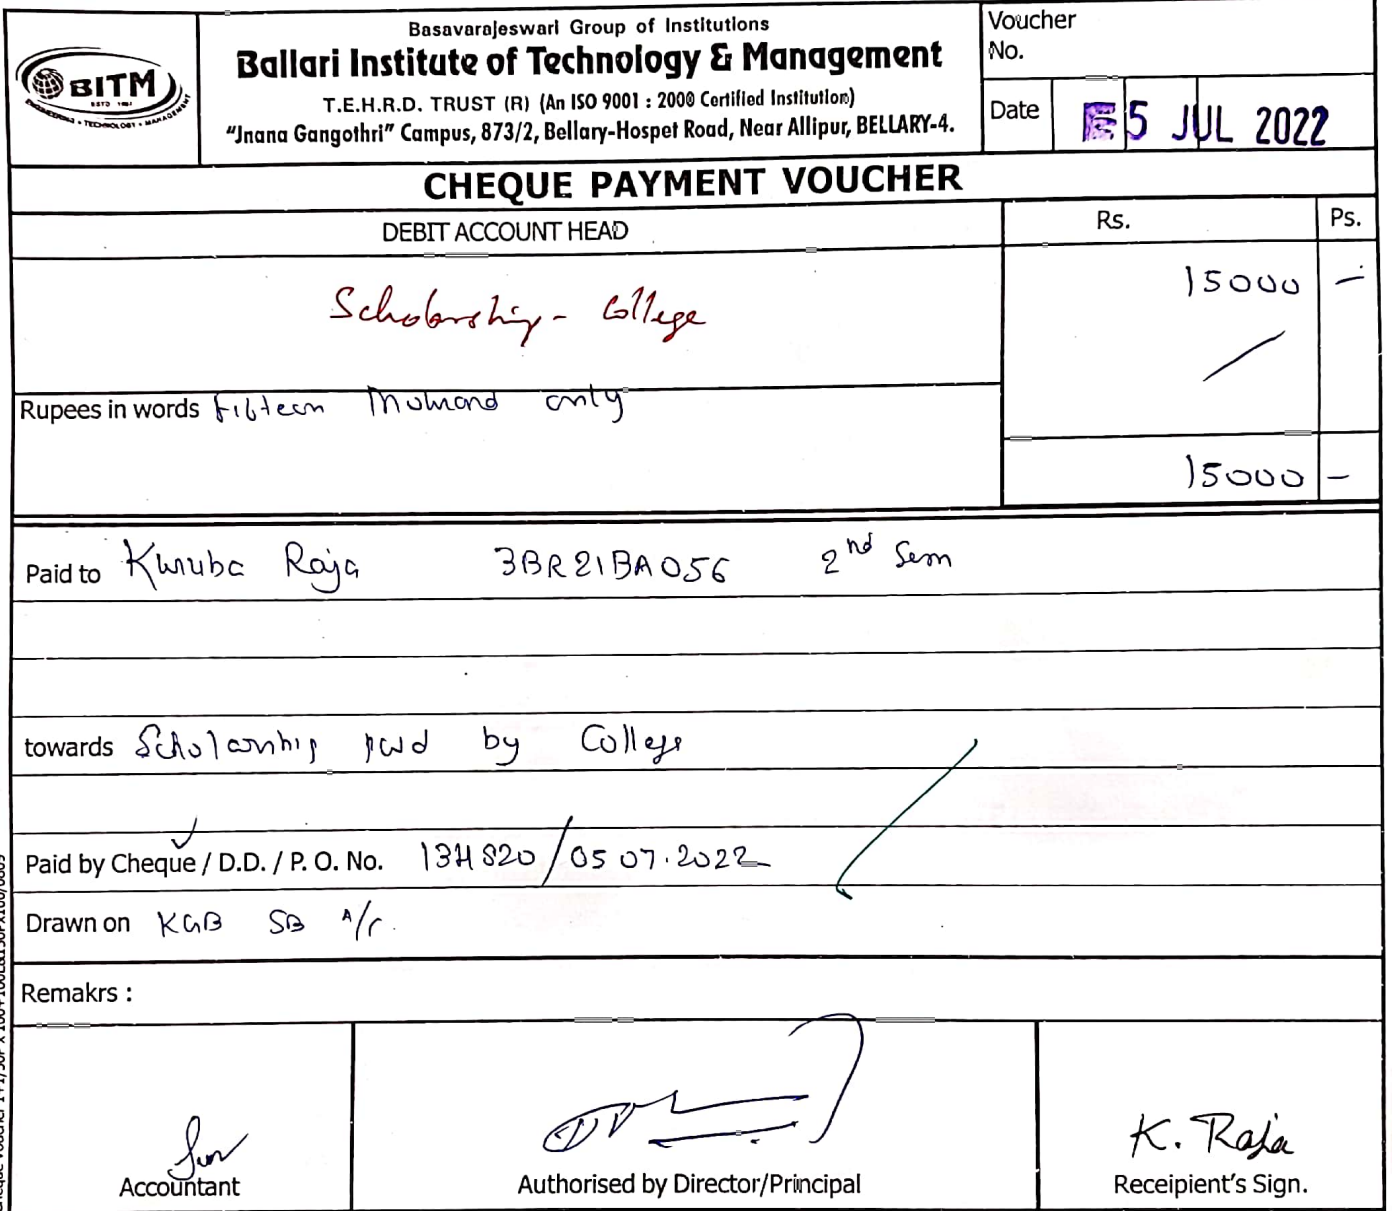 Basavarajeswari Group of Institutions
Ballari Institute of Technology & Management
T.E.H.R.D. TRUST (R) (An ISO 9001 : 2000 Certified Institution)
"Jnana Gangothri" Campus, 873/2, Bellary-Hospet Road, Near Allipur, BELLARY-4.
BITM
ESTD 1997
ENGINEERING • TECHNOLOGY • MANAGEMENT
Voucher
No.
Date 5 JUL 2022
CHEQUE PAYMENT VOUCHER
DEBIT ACCOUNT HEAD Rs. Ps.
Scholarship - College 15000 -
Rupees in words Fifteen Thousand only
15000 -
Paid to Kuruba Raja 3BR21BA056 2nd Sem
towards Scholarship paid by College
Paid by Cheque / D.D. / P. O. No. 134820 / 05 07.2022
Drawn on KGB SB A/c.
Remakrs :
K. Raja
Accountant Authorised by Director/Principal Receipient's Sign.